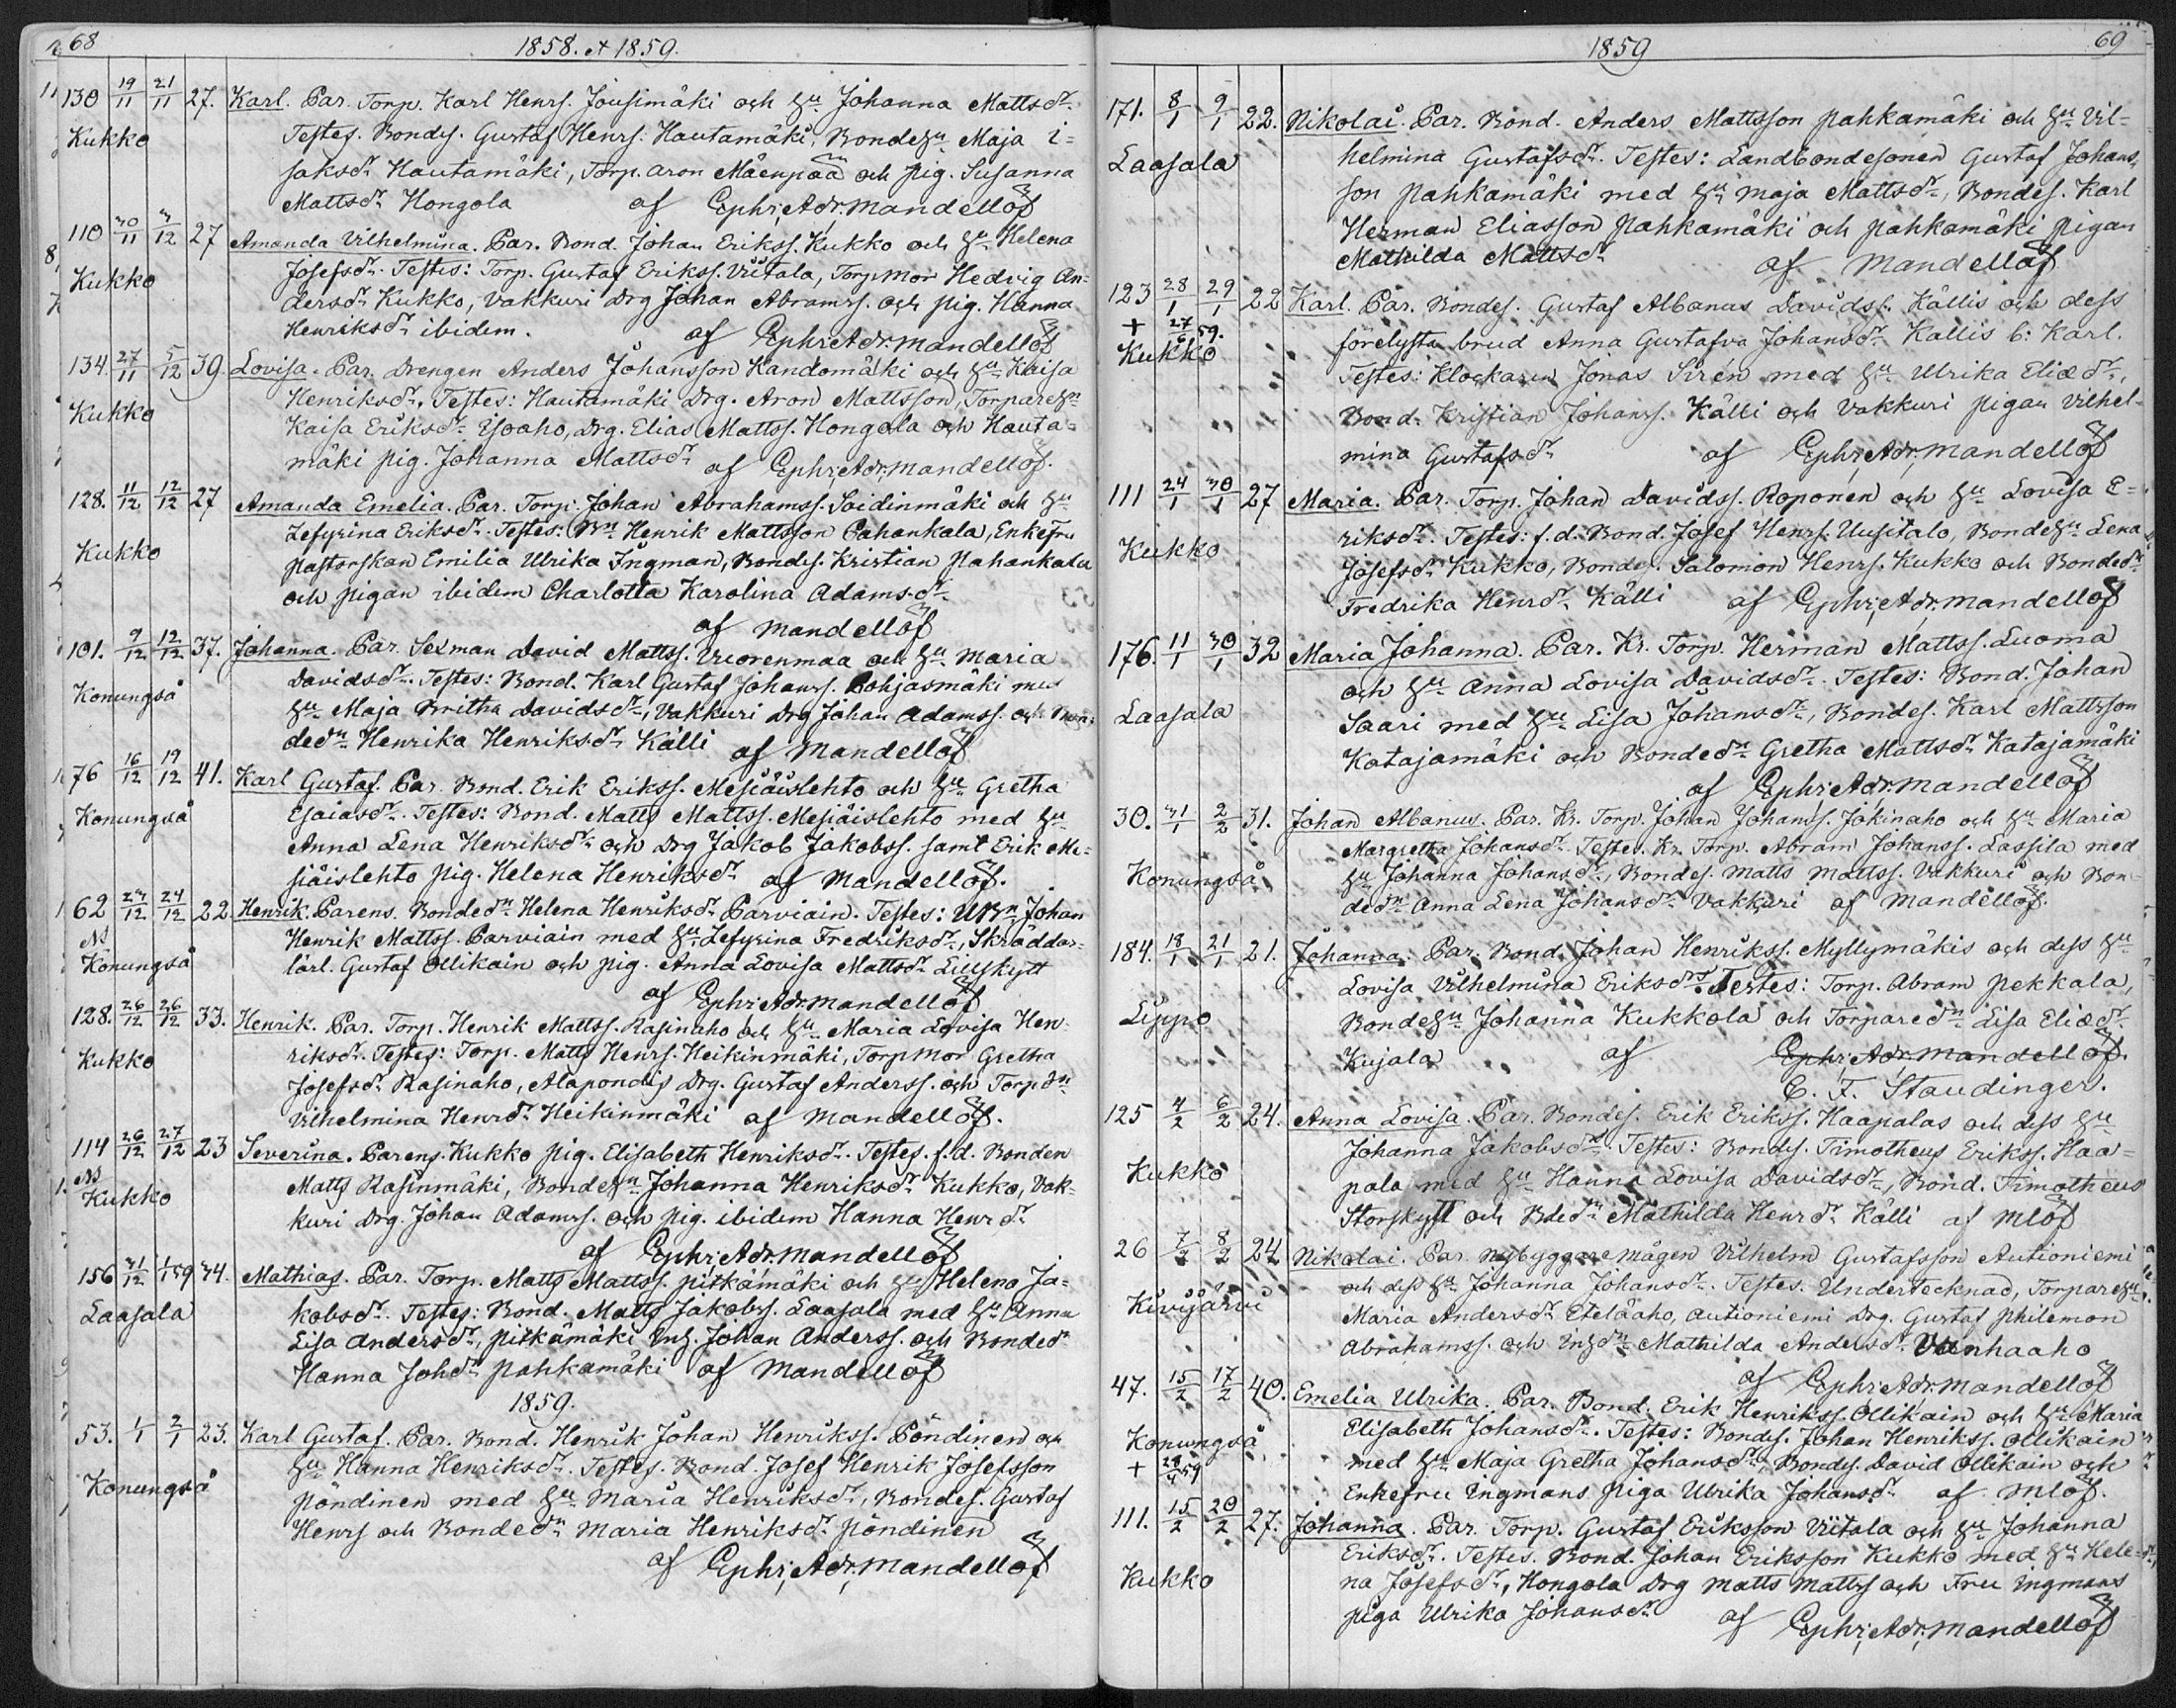 68
1858. et 1859.
130 19/11 21/11 27. Karl. Par. Torp. Karl Henrs. Jousimäki och hu Johanna Mattsdr.
Kukko Testes. Bondes. Gustaf Henrs. Hautamäki, Bondehu Maja I=
saksdr Hautamäki, Torp. Aron Mäenpää och pig. Susanna
Mattsdr Hongola af Ephr; Adr; Mandellöf
110 30/11 3/12 27 Amanda Vilhelmina. Par. Bond. Johan Erikss. Kukko och hu Helena
Kukko Josefsdr. Testes: Torp. Gustaf Erikss. Viitala, Torpmor Hedvig An=
dersdr Kukko, Vakkuri Drg Johan Abramss. och pig. Hanna
Henriksdr ibidem. af Ephr; Adr; Mandellöf
134. 27/11 5/12 39. Lovisa. Par. Drengen Anders Johansson Kandomäki och hu Kaisa
Kukko Henriksdr. Testes: Hautamäki Drg. Aron Mattsson, Torparehu
Kaisa Eriksdr Isoaho, Drg. Elias Mattss. Hongola och Hauta=
mäki pig. Johanna Mattsdr af Ephr; Adr; Mandellöf.
128. 11/12 12/12 27 Amanda Emelia. Par. Torp. Johan Abrahamss. Soidinmäki och hu
Kukko Zefyrina Eriksdr. Testes: Bn Henrik Mattsson Pahankala, Enkefru
pastorskan Emilia Ulrika Ingman, Bondes. Kristian Pahankala
och pigan ibidem Charlotta Karolina Adamsdr
af Mandellöf
101. 9/12 12/12 37. Johanna. Par. Sexman David Mattss. Vuorenmaa och hu Maria
Konungså Davidsdr. Testes: Bond. Karl Gustaf Johanss. Pohjasmäki med
hu Maja Britha Davidsdr, Vakkuri Drg Johan Adamss. och Bon=
dedr Henrika Henriksdr Källi af Mandellöf
76 16/12 19/12 41. Karl Gustaf. Par. Bond. Erik Erikss. Mesiäislehto och hu Gretha
Konungså Esaiasdr. Testes: Bond. Matts Mattss. Mesiäislehto med hu
Anna Lena Henriksdr och Drg Jakob Jakobss. samt Erik Me=
siäislehto pig. Helena Henriksdr af Mandellöf.
62 23/12 24/12 22 Henrik. Parens. Bondedr Helena Henriksdr Parviain. Testes: UBn Johan
Konungså Henrik Mattss. Parviain med hu Zefyrina Fredriksdr, Skräddar=
lärl. Gustaf Ollikain och pig. Anna Lovisa Mattsdr Lillskytt
af Ephr; Adr; Mandellöf
128. 26/12 26/12 33. Henrik. Par. Torp. Henrik Mattss. Rasinaho och hu Maria Lovisa Hen=
Kukko riksdr. Testes: Torp. Matts Henrs. Heikinmäki, Torpmor Gretha
Josefsdr Rasinaho, Alapondis Drg. Gustaf Anderss. och Torpdr
Vilhelmina Henrdr Heikinmäki af Mandellöf.
114 26/12 27/12 23 Severina. Parens. Kukko pig. Elisabeth Henriksdr. Testes. f.d. Bonden
Kukko Matts Rasinmäki, Bondehu Johanna Henriksdr Kukko, Vak=
kuri Drg. Johan Adamss. och pig. ibidem Hanna Henrdr
af Ephr; Adr; Mandellöf
156 31/12 1/1 59 34. Mathias. Par. Torp. Matts Mattss. Pitkämäki och hu Helena Ja=
Laasala kobsdr. Testes: Bond. Matts Jakobss. Laasala med hu Anna
Lisa Andersdr, Pitkämäki Ing. Johan Anderss. och Bondedr
Hanna Johdr Pahkamäki af Mandellöf
1859.
53. 1/1 2/1 23. Karl Gustaf. Par. Bond. Henrik Johan Henrikss. Pöndinen och
Konungså hu Hanna Henriksdr. Testes. Bond. Josef Henrik Josefsson
Pöndinen med hu Maria Henriksdr, Bondes. Gustaf
Henrs och Bondedr Maria Henriksdr Pöndinen
af Ephr; Adr; Mandellöf
1859
69
171. 8/1 9/1 22. Nikolai. Par. Bond. Anders Mattsson Pahkamäki och hu Vil=
Laasala helmina Gustafsdr. Testes: Landbondesonen Gustaf Johans=
son Pahkamäki med hu Maja Mattsdr, Bondes. Karl
Herman Eliasson Pahkamäki och Pahkamäki pigan
Mathilda Mattsdr af Mandellöf
123 28/1 29/1 22 Karl. Par. Bondes. Gustaf Albanus Davidss. Källis och dess
+ 27/6 59. förelysta brud Anna Gustafva Johansdr Kallis b: Karl.
Kukko Testes: Klockaren Jonas Sirén med hu Ulrika Eliædr,
Bond. Kristian Johanss. Källi och Vakkuri pigan Vilhel=
mina Gustafsdr af Ephr; Adr; Mandellöf
111 24/1 30/1 27 Maria. Par. Torp. Johan Davidss. Roponen och hu Lovisa E=
Kukko riksdr. Testes: f.d. Bond. Josef Henrs. Uusitalo, Bondehu Lena
Josefsdr Kukko, Bondes. Salomon Henrs. Kukko och Bondedr
Fredrika Henrdr Källi af Ephr; Adr; Mandellöf
176. 11/1 30/1 32 Maria Johanna. Par. Kr. Torp. Herman Mattss. Luoma
Laasala och hu Anna Lovisa Davidsdr. Testes: Bond. Johan
Saari med hu Lisa Johansdr, Bondes. Karl Mattsson
Katajamäki och Bondedr Gretha Mattsdr Katajamäki
af Ephr; Adr; Mandellöf
30. 31/1 2/2 31. Johan Albanus. Par. Kr. Torp. Johan Johanss. Jokinaho och hu Maria
Konungså Margretha Johansdr. Testes. Kr. Torp. Abram Johanss. Lassila med
hu Johanna Johansdr, Bondes. Matts Mattss. Vakkuri och Bon=
dedr Anna Lena Johansdr Vakkuri af Mandellöf.
184. 18/1 21/1 21. Johanna. Par. Bond. Johan Henrikss. Myllymäkis och dess hu
Lippo Lovisa Vilhelmina Eriksdr. Testes: Torp. Abram Pekkala,
Bondehu Johanna Kukkola och Torparedr Lisa Eliædr
Kujala af Ephr; Adr; Mandellöf.
C. F. Staudinger.
125 4/2 6/2 24. Anna Lovisa. Par. Bondes. Erik Erikss. Haapalas och dess hu
Kukko Johanna Jakobsdr. Testes: Bondes. Timotheus Erikss. Haa=
pala med hu Hanna Lovisa Davidsdr, Bond. Timotheus
Storskytt och Bdedr Mathilda Henrdr Källi af Mlöf
26 7/2 8/2 24 Nikolai. Par. Nybyggaremågen Vilhelm Gustafsson Autioniemi
Kivijärvi och dess hu Johanna Johansdr. Testes. Undertecknad, Torparehu
Maria Andersdr Eteläaho, Autioniemi Drg. Gustaf Philemon
Abrahamss. och Ingdr Mathilda Andersdr Vanhaaho
af Ephr; Adr; Mandellöf
47. 15/2 17/2 40. Emelia Ulrika. Par. Bond. Erik Henrikss. Ollikain och hu Maria
Konungså Elisabeth Johansdr. Testes: Bondes. Johan Henrikss. Ollikain
+ 28/4 59 med hu Maja Gretha Johansdr, Bondes. David Ollikain och
Enkefru Ingmans piga Ulrika Johansdr af Mlöf.
111. 15/2 20/2 27. Johanna. Par. Torp. Gustaf Eriksson Viitala och hu Johanna
Kukko Eriksdr. Testes. Bond. Johan Eriksson Kukko med hu Hele=
na Josefsdr, Hongola Drg Matts Mattss och Fru Ingmans
piga Ulrika Johansdr af Ephr; Adr; Mandellöf